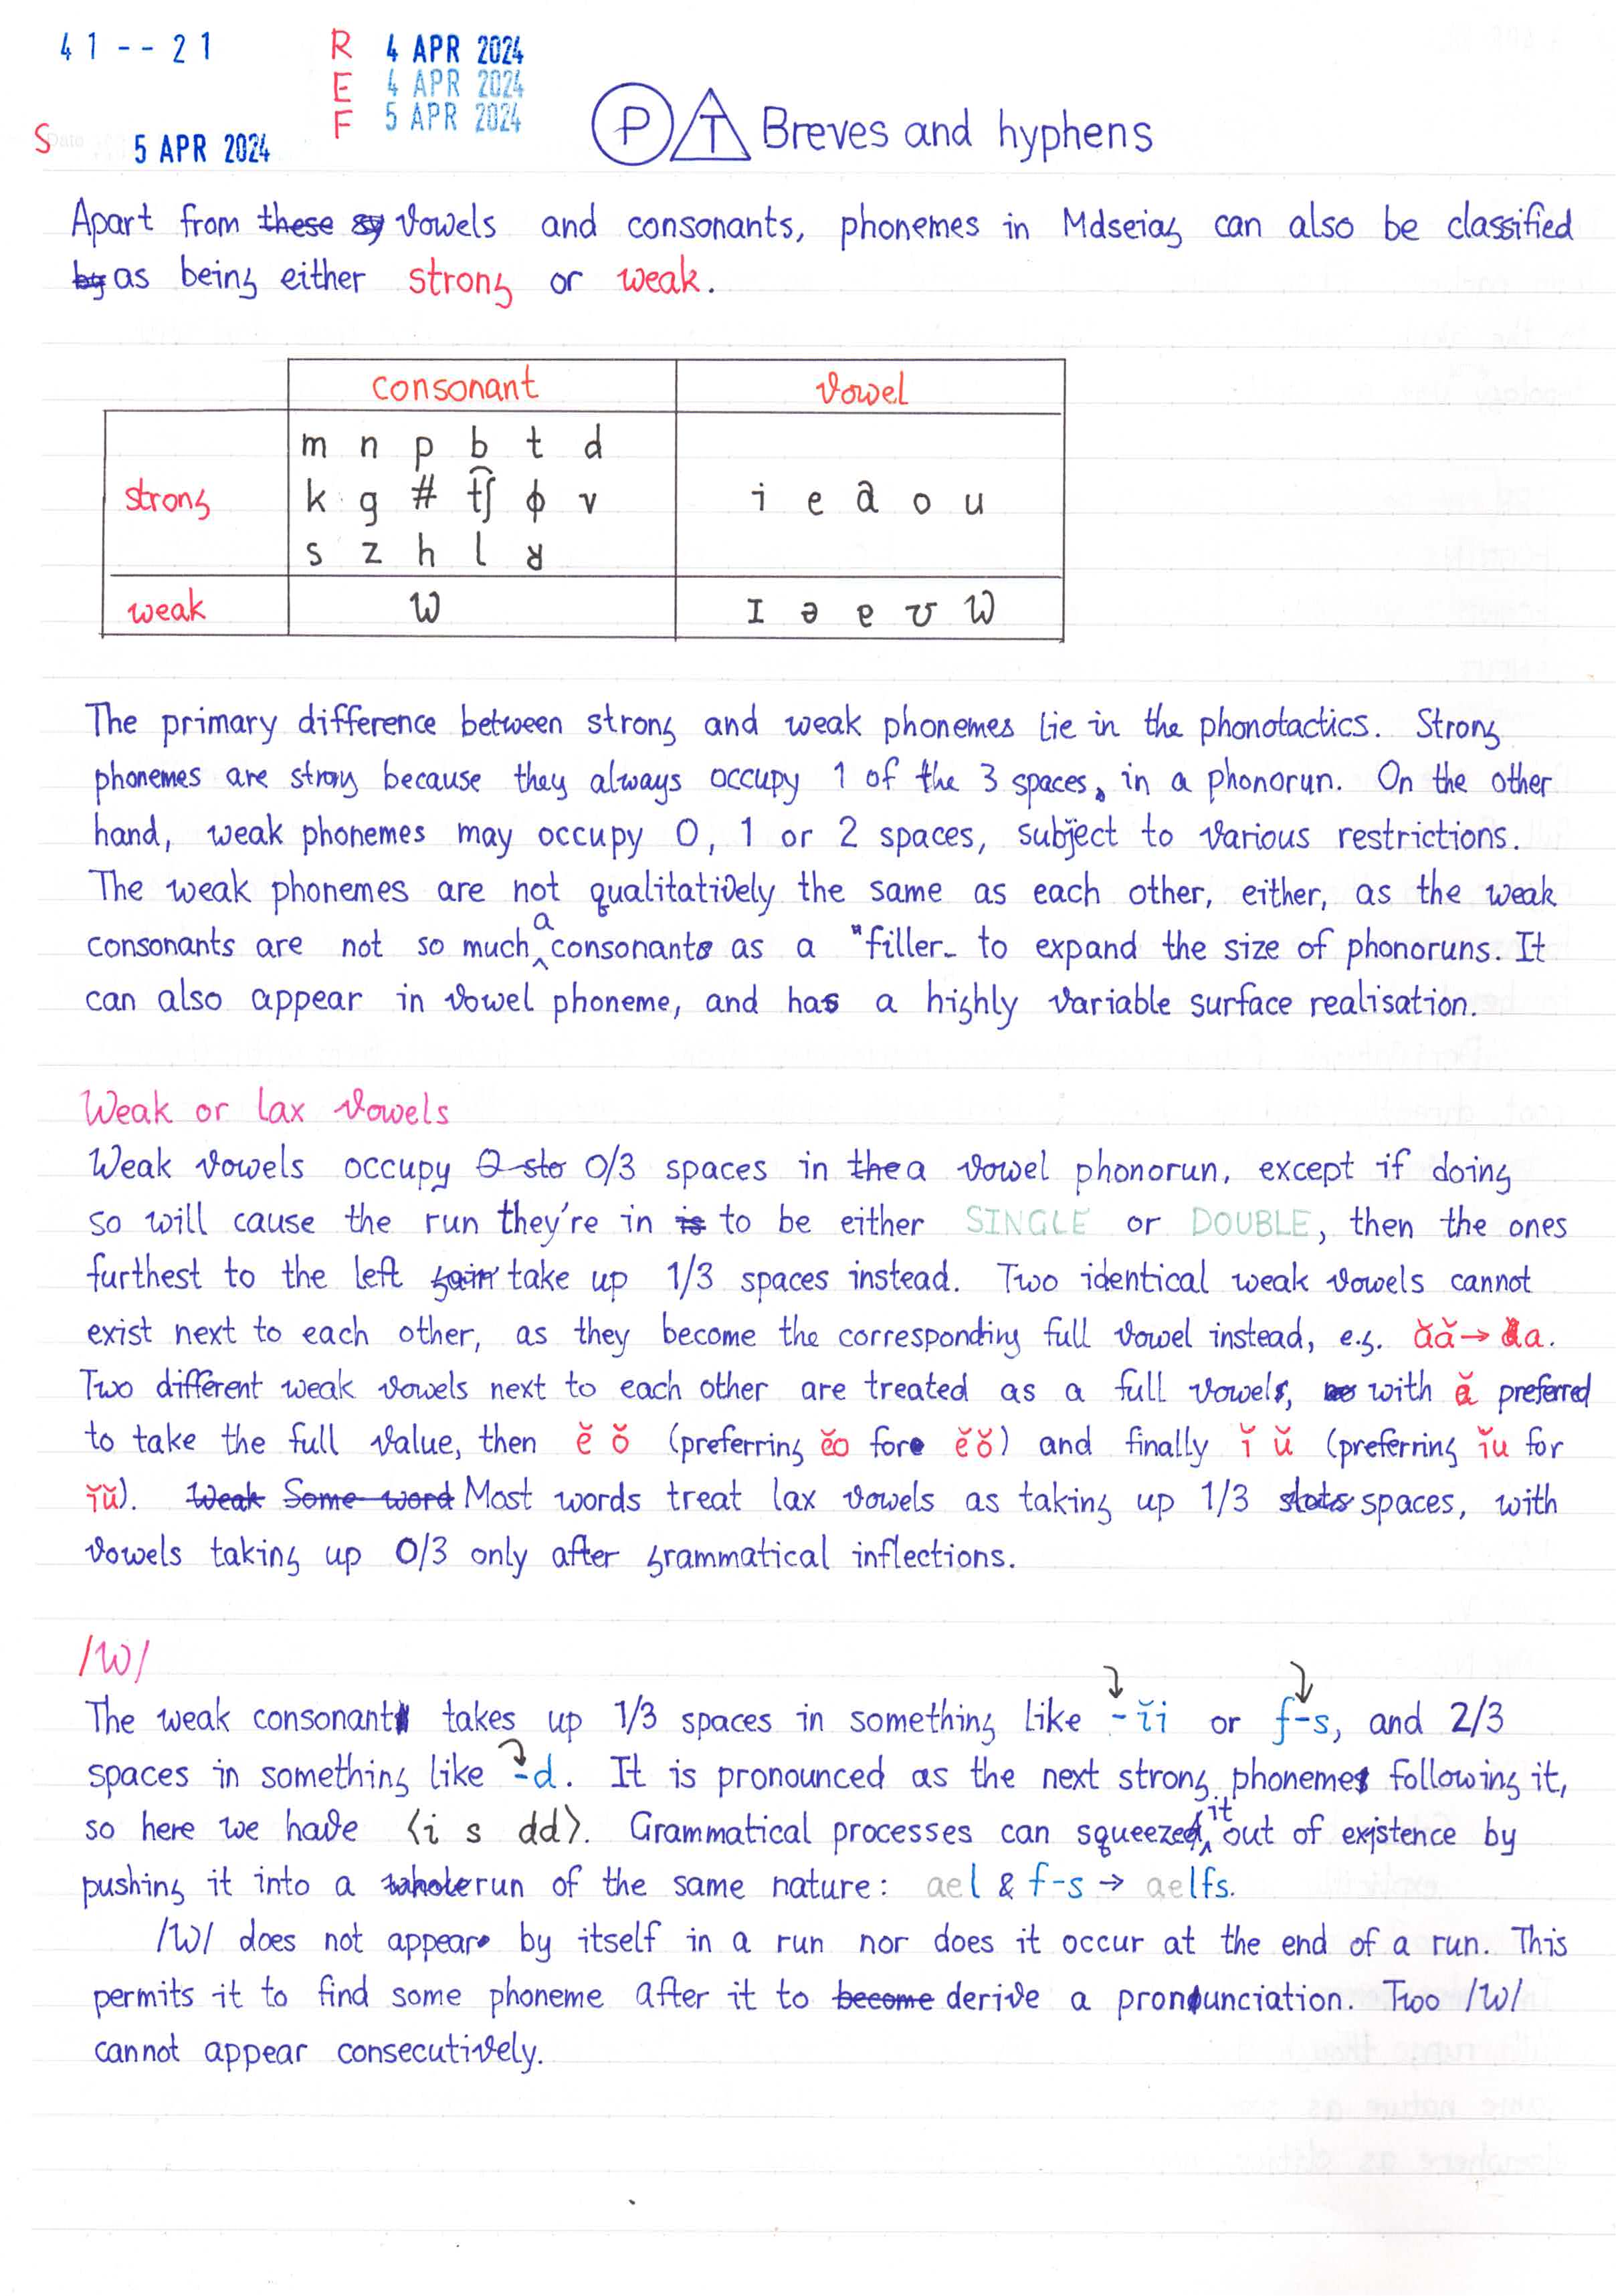 41--21 R 4 APR 2024
E 4 APR 2024
F 5 APR 2024
S Date 5 APR 2024
P T Breves and hyphens
Apart from these sy vowels and consonants, phonemes in Mdseiag can also be classified
by as being either strong or weak.
consonant vowel
m n p b t d
strong k g # t͡ʃ ɸ v i e a o u
s z h l ʁ
weak W ɪ ə ɐ ʊ W
The primary difference between strong and weak phonemes lie in the phonotactics. Strong
phonemes are strong because they always occupy 1 of the 3 spaces, in a phonorun. On the other
hand, weak phonemes may occupy 0, 1 or 2 spaces, subject to various restrictions.
The weak phonemes are not qualitatively the same as each other, either, as the weak
consonants are not so much a consonant as a "filler_ to expand the size of phonoruns. It
can also appear in vowel phoneme, and has a highly variable surface realisation.
Weak or lax vowels
Weak vowels occupy 0 sto 0/3 spaces in the a vowel phonorun, except if doing
so will cause the run they're in is to be either SINGLE or DOUBLE, then the ones
furthest to the left gain take up 1/3 spaces instead. Two identical weak vowels cannot
exist next to each other, as they become the corresponding full vowel instead, e.g. ăă → a.
Two different weak vowels next to each other are treated as a full vowels, with ă preferred
to take the full value, then ĕ ŏ (preferring ĕo for ĕŏ) and finally ĭ ŭ (preferring ĭu for
ĭŭ). Weak Some word Most words treat lax vowels as taking up 1/3 slots spaces, with
vowels taking up 0/3 only after grammatical inflections.
/W/
The weak consonant takes up 1/3 spaces in something like -ĭi or f-s, and 2/3
spaces in something like -d. It is pronounced as the next strong phoneme following it,
so here we have ⟨i s dd⟩. Grammatical processes can squeeze it out of existence by
pushing it into a whole run of the same nature: ael & f-s → aelfs.
/W/ does not appear by itself in a run nor does it occur at the end of a run. This
permits it to find some phoneme after it to become derive a pronunciation. Two /W/
cannot appear consecutively.